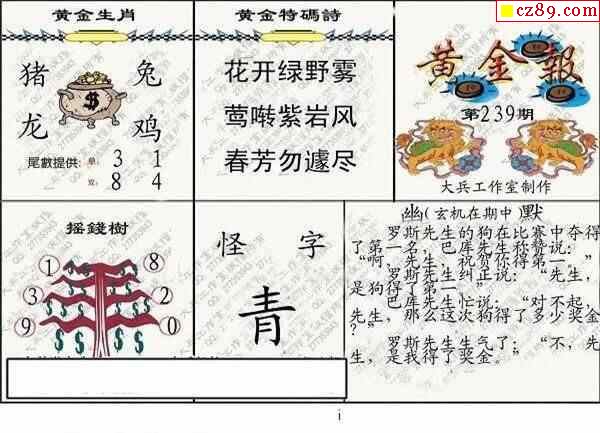 cz89.com
黄金生肖
猪 兔
龙 鸡
尾數提供: 单: 3 1
双: 8 4
黄金特碼詩
花开绿野雾
莺啭紫岩风
春芳勿遽尽
黄金報
第239期
大兵工作室制作
摇錢樹
1 8
3 2
9 0
怪 字
青
幽(玄机在期中)默
罗斯先生的狗在比赛中夺得
了第一名，巴库先生称赞说：
“啊，先生，祝贺你得第一。”
罗斯先生纠正说：“先生，
是狗得了第一”
巴库先生忙说：“对不起，
先生，那么这次狗得了多少奖金
？”
罗斯先生生气了：“不，先
生，是我得了奖金。”
i